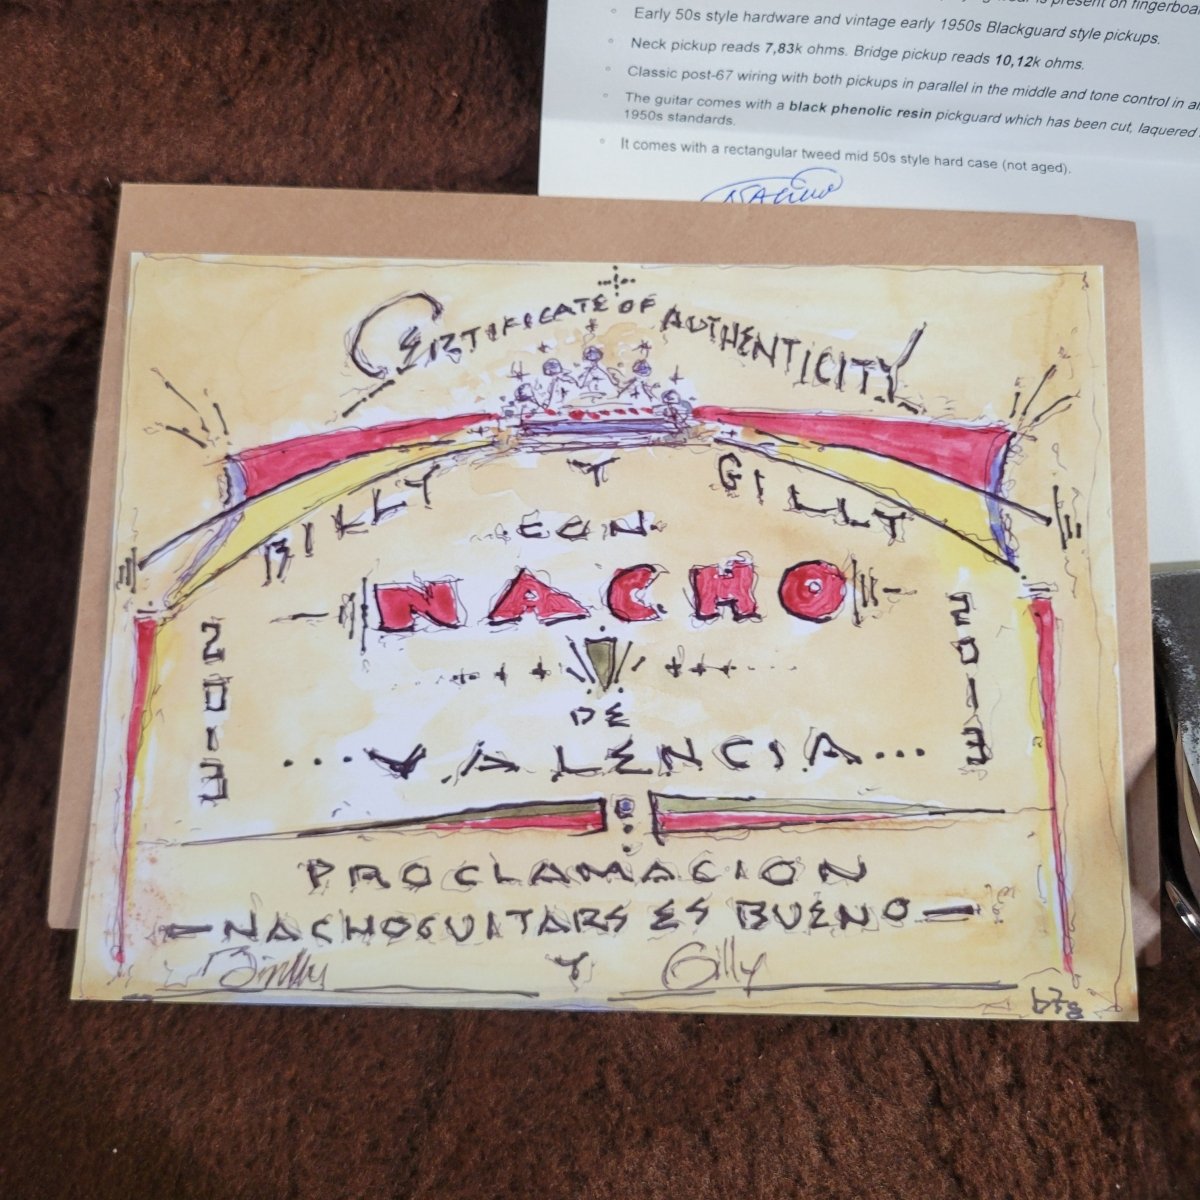 is present on
Early 50s style hardware and vintage early 1950s Blackguard style pickups.
Neck pickup reads 7,83k ohms. Bridge pickup reads 10,12k ohms.
Classic post-67 wiring with both pickups in parallel in the middle and tone control in
The guitar comes with a black phenolic resin pickguard which has been cut, laquered
1950s standards.
It comes with a rectangular tweed mid 50s style hard case (not aged).
CERTIFICATE OF AUTHENTICITY
BILLY Y GILLY
CON
NACHO
2013
2013
DE
...VALENCIA...
PROCLAMACION
—NACHOGUITARS ES BUENO—
Billy Y Gilly
bfg